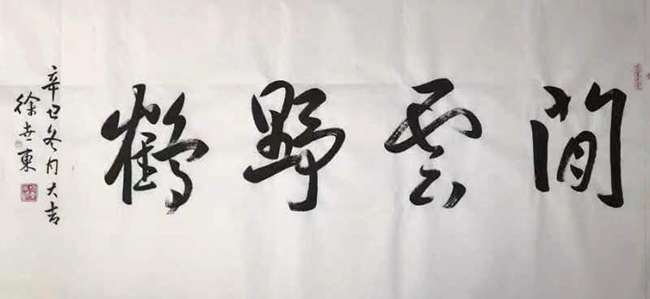 閒雲野鶴
辛巳冬月大吉
徐世東